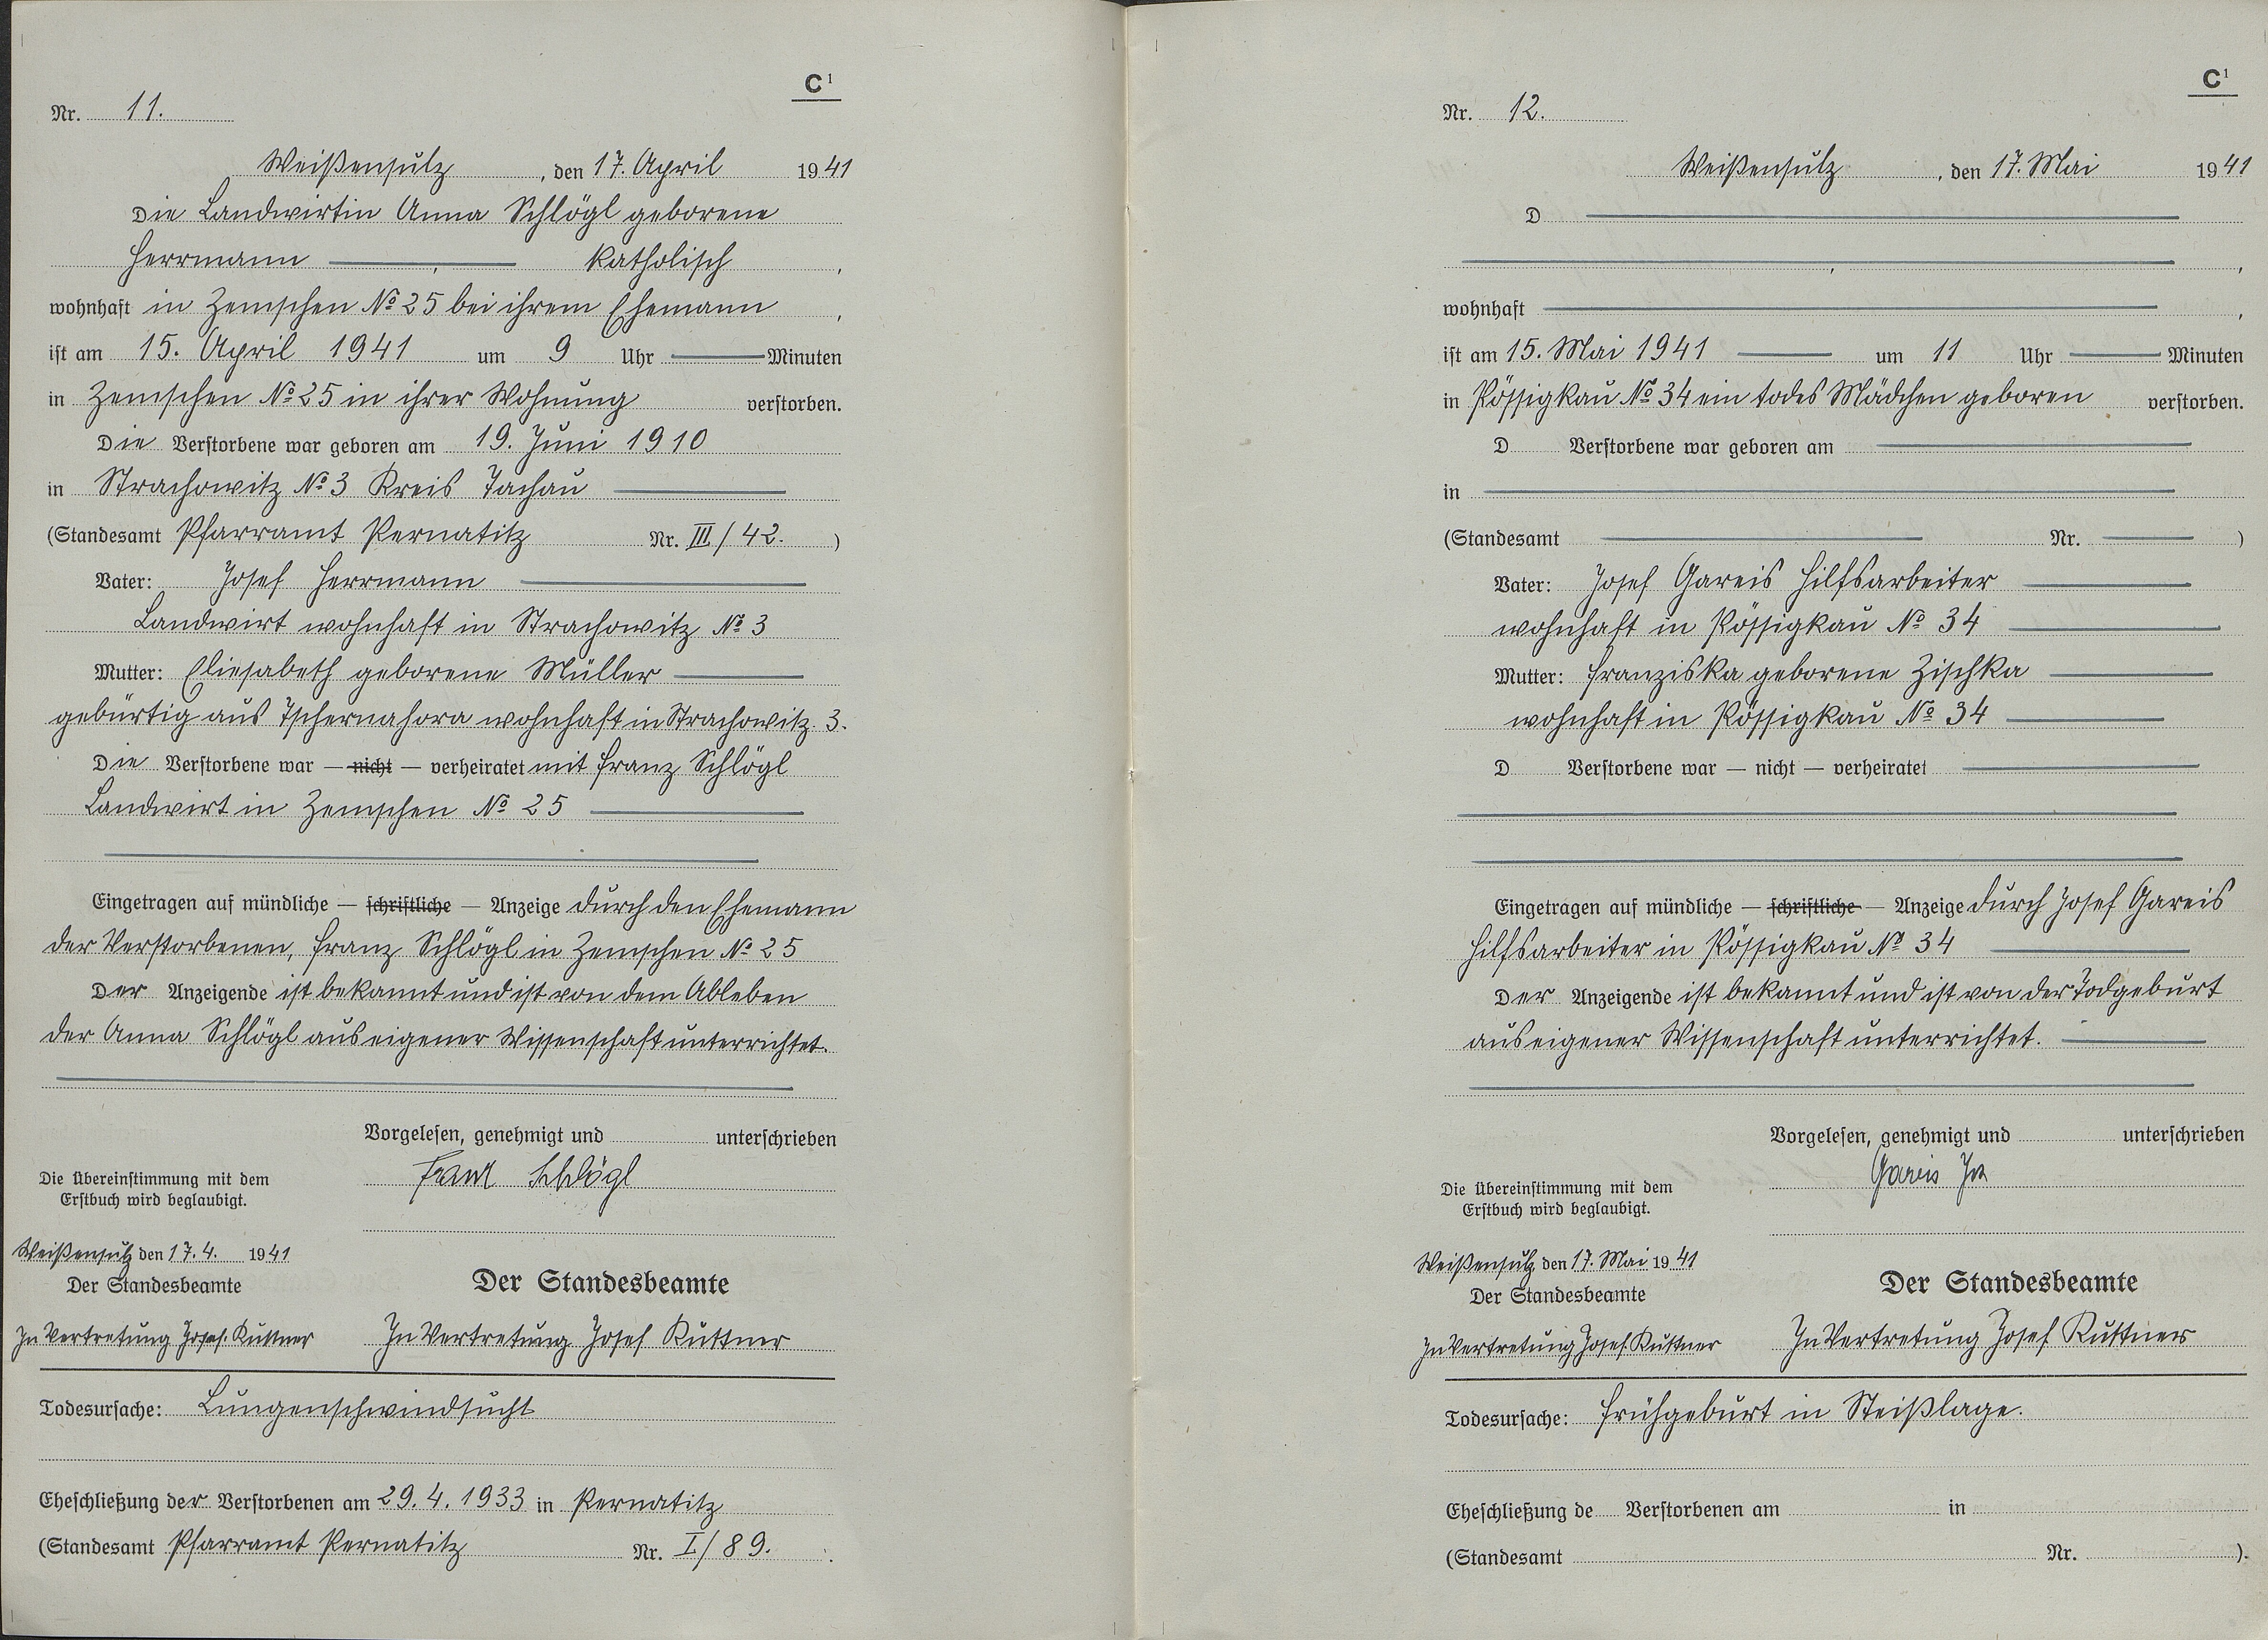 C¹
Nr. 11.
Weißensulz, den 17. April 1941
Die Landwirtin Anna Schlögl geborene
Herrmann, katholisch,
wohnhaft in Zemschen No 25 bei ihrem Ehemann,
ist am 15. April 1941 um 9 Uhr Minuten
in Zemschen No 25 in ihrer Wohnung verstorben.
Die Verstorbene war geboren am 19. Juni 1910
in Strachowitz No 3 Kreis Tachau
(Standesamt Pfarramt Pernatitz Nr. III/42.)
Vater: Josef Herrmann
Landwirt wohnhaft in Strachowitz No 3
Mutter: Eliesabeth geborene Müller
gebürtig aus Tschernahora wohnhaft in Strachowitz 3.
Die Verstorbene war — nicht — verheiratet mit Franz Schlögl
Landwirt in Zemschen No 25
Eingetragen auf mündliche — schriftliche — Anzeige durch den Ehemann
der Verstorbenen, Franz Schlögl in Zemschen No 25
Der Anzeigende ist bekannt und ist von dem Ableben
der Anna Schlögl aus eigener Wissenschaft unterrichtet.
Vorgelesen, genehmigt und unterschrieben
Franz Schlögl
Die Übereinstimmung mit dem
Erstbuch wird beglaubigt.
Weißensulz den 17. 4. 1941
Der Standesbeamte
In Vertretung Josef Kuttner
Der Standesbeamte
In Vertretung Josef Kuttner
Todesursache: Lungenschwindsucht
Eheschließung der Verstorbenen am 29. 4. 1933 in Pernatitz
(Standesamt Pfarramt Pernatitz Nr. I/89.
C¹
Nr. 12.
Weißensulz, den 17. Mai 1941
D
,
wohnhaft ,
ist am 15. Mai 1941 um 11 Uhr Minuten
in Pössigkau No 34 ein todes Mädchen geboren verstorben.
D Verstorbene war geboren am
in
(Standesamt Nr. )
Vater: Josef Gareis Hilfsarbeiter
wohnhaft in Pössigkau No 34
Mutter: Franziska geborene Zischka
wohnhaft in Pössigkau No 34
D Verstorbene war — nicht — verheiratet
Eingetragen auf mündliche — schriftliche — Anzeige durch Josef Gareis
Hilfsarbeiter in Pössigkau No 34
Der Anzeigende ist bekannt und ist von der Todgeburt
aus eigener Wissenschaft unterrichtet.
Vorgelesen, genehmigt und unterschrieben
Gareis Jos
Die Übereinstimmung mit dem
Erstbuch wird beglaubigt.
Weißensulz den 17. Mai 1941
Der Standesbeamte
In Vertretung Josef Kuttner
Der Standesbeamte
In Vertretung Josef Kuttner
Todesursache: Frühgeburt in Steißlage.
Eheschließung de Verstorbenen am in
(Standesamt Nr. ).